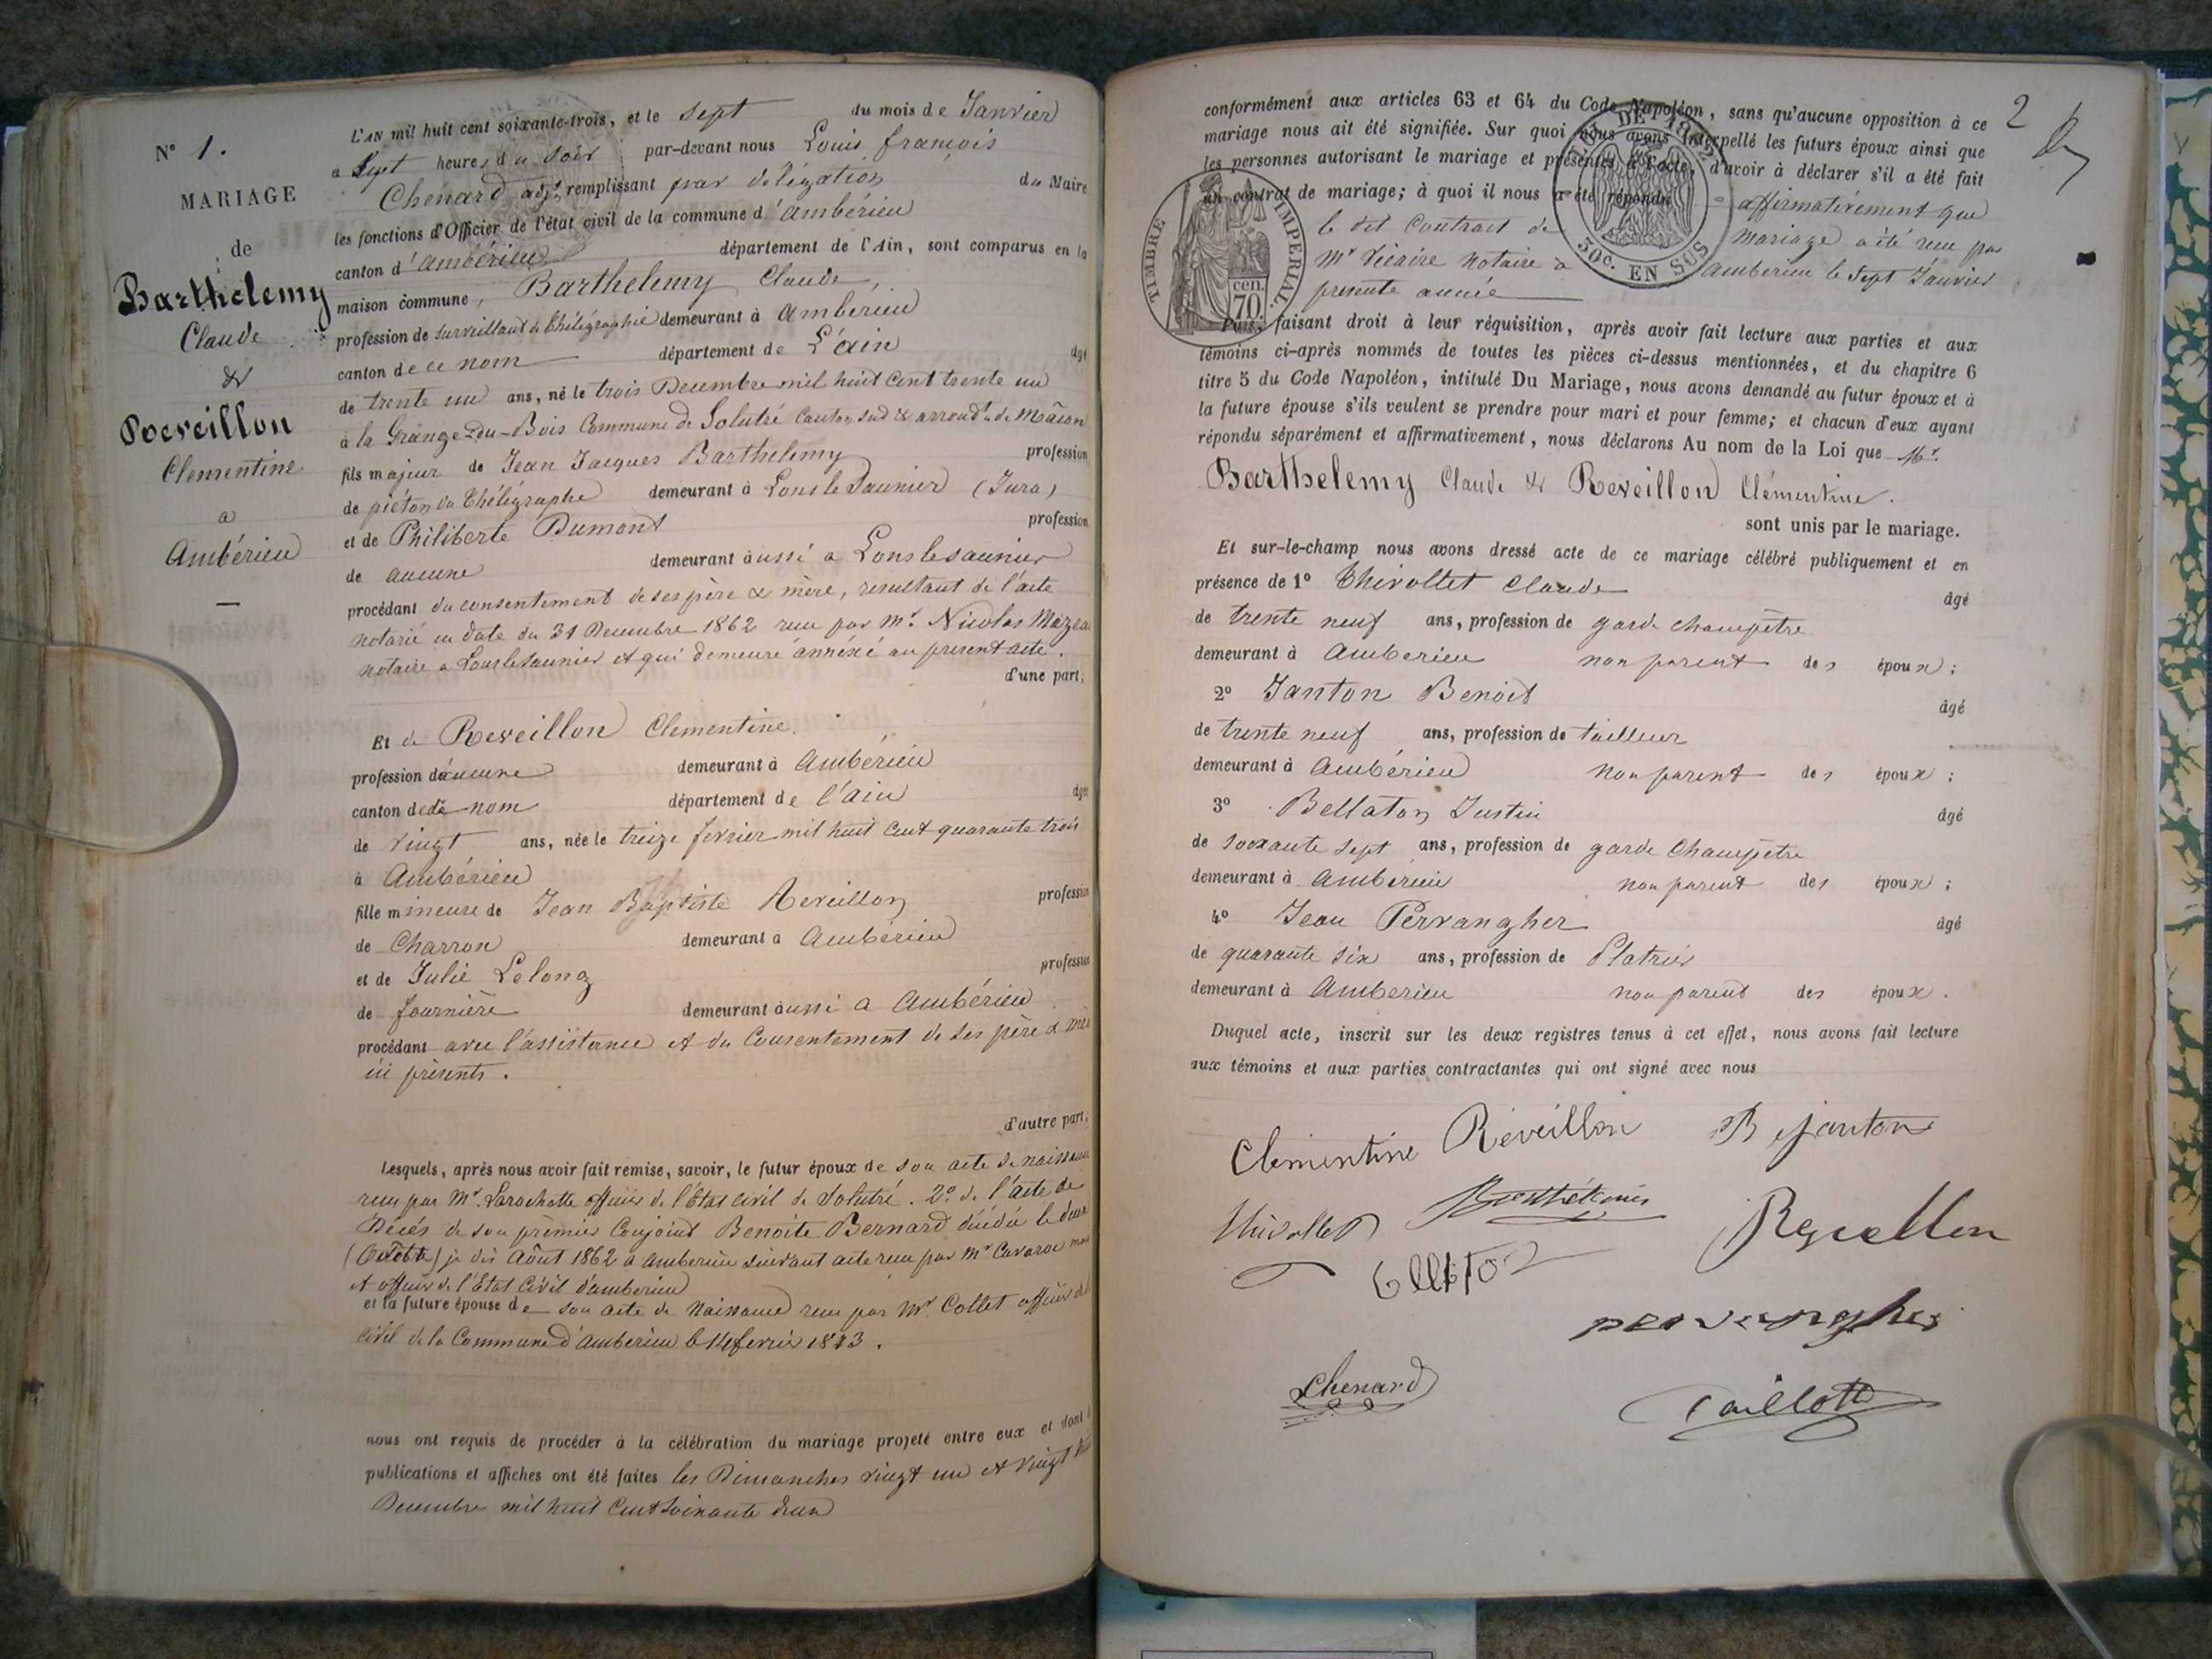 N° 1.
MARIAGE
de
Barthelemy
Claude
&
Reveillon
Clementine
a
Ambérieu
L'AN mil huit cent soixante-trois, et le sept du mois de Janvier
a Sept heures du soir par-devant nous Louis françois
Chenard adjt remplissant par délégation du Maire
les fonctions d'Officier de l'état civil de la commune d'Ambérieu
canton d'Ambérieu département de l'Ain, sont comparus en la
maison commune, Barthelemy Claude
profession de surveillant de thélégraphie demeurant à Ambérieu
canton de ce nom département de L'ain âgé
de trente un ans, né le trois Decembre mil huit cent trente un
à la Grange-du-Bois Commune de Solutré Canton sud & arrondt de Mâcon
fils majeur de Jean Jacques Barthelemy profession
de piéton du Thélégraphe demeurant à Lons le Saunier (Jura)
et de Philiberte Dumont profession
de aucune demeurant aussi a Lons le saunier
procédant du consentement de ses père & mère, resultant de l'acte
notarié en date du 31 Decembre 1862 reçu par Mr. Nicolas
notaire a Lons le saunier et qui demeure annéxé au present acte.
d'une part;
Et de Reveillon Clementine.
profession d'aucune demeurant à Ambérieu
canton de dé nom département de l'ain âgée
de vingt ans, née le treize fevrier mil huit cent quarante trois
à Ambérieu
fille mineure de Jean Baptiste Reveillon profession
de Charron demeurant à Ambérieu
et de Julie Lelong profession
de fournière demeurant aussi a Ambérieu
procédant avec l'assistance et du Consentement de ses père &
ici présents.
d'autre part;
Lesquels, après nous avoir fait remise, savoir, le futur époux de son acte de naissance
reçu par Mr. Larochette officier de l'Etat civil de Solutré. 2° de l'acte de
Décés de son prémier Conjoint Benoite Bernard décédée le deux
(Octobre) je dis Août 1862 a Amberieu suivant acte reçu par Mr
et officier de l'Etat Civil d'amberieu
et la future épouse de son acte de Naissance reçu par Mr. Collet officier
civil de la Commune d'Amberieu le 14 fevrier 1843.
nous ont requis de procéder à la célébration du mariage projeté entre eux et dont
publications et affiches ont été faites les Dimanches vingt un et vingt
Decembre mil huit Cent Soixante deux
2
conformément aux articles 63 et 64 du Code Napoléon, sans qu'aucune opposition à ce
mariage nous ait été signifiée. Sur quoi nous avons interpellé les futurs époux ainsi que
les personnes autorisant le mariage et présentes à l'acte, d'avoir à déclarer s'il a été fait
un contrat de mariage; à quoi il nous a été répondu affirmativement que
le dit Contract de mariage a été reçu par
Mr Vicaire Notaire a Amberieu le Sept Janvier
presente année
TIMBRE IMPERIAL
70. cen.
10e DE 1862
50c. EN SUS
Puis, faisant droit à leur réquisition, après avoir fait lecture aux parties et aux
témoins ci-après nommés de toutes les pièces ci-dessus mentionnées, et du chapitre 6
titre 5 du Code Napoléon, intitulé Du Mariage, nous avons demandé au futur époux et à
la future épouse s'ils veulent se prendre pour mari et pour femme; et chacun d'eux ayant
répondu séparément et affirmativement, nous déclarons Au nom de la Loi que Mr.
Barthelemy Claude & Reveillon Clémentine.
sont unis par le mariage.
Et sur-le-champ nous avons dressé acte de ce mariage célébré publiquement et en
présence de 1° Thivollet Claude âgé
de trente neuf ans, profession de garde champêtre
demeurant à Amberieu non parent des époux;
2° Janton Benoit âgé
de trente neuf ans, profession de tailleur
demeurant à Ambérieu non parent des époux;
3° Bellaton Justin âgé
de soixante sept ans, profession de garde Champêtre
demeurant à Amberieu non parent des époux;
4° Jean Pervangher âgé
de quarante six ans, profession de Platrier
demeurant à Amberieu non parent des époux.
Duquel acte, inscrit sur les deux registres tenus à cet effet, nous avons fait lecture
aux témoins et aux parties contractantes qui ont signé avec nous
Clementine Réveillon B Janton
Thivollet Barthélemy Reveillon
pervangher
Chenard